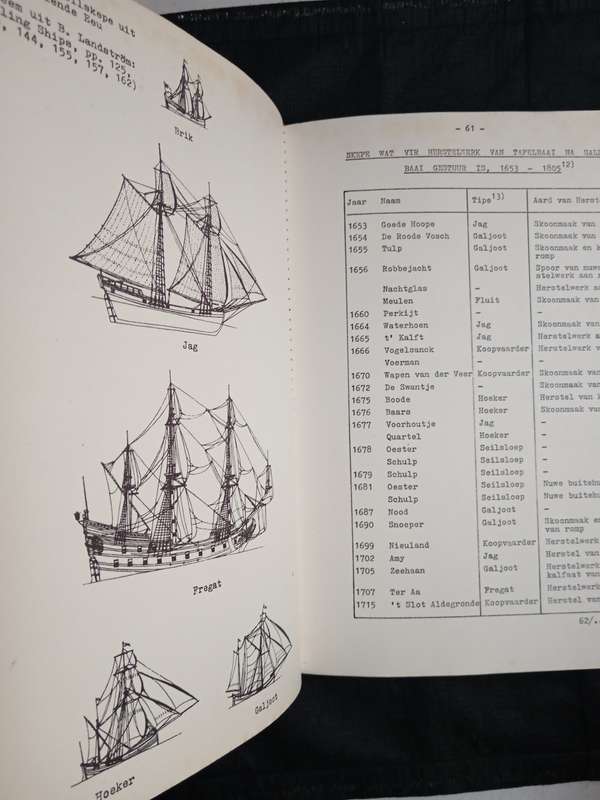 ilskepe uit
ende Eeu
em uit B. Landström:
ling Ships, pp. 125,
, 144, 155, 157, 162)
Brik
Jag
Fregat
Galjoot
Hoeker
- 61 -
SKEPE WAT VIR HERSTELWERK VAN TAFELBAAI NA
BAAI GESTUUR IS, 1653 - 1805 12)
Jaar Naam Tipe 13) Aard van Herste
1653 Goede Hoope Jag Skoonmaak van
1654 De Roode Vosch Galjoot Skoonmaak van
1655 Tulp Galjoot Skoonmaak en k
romp
1656 Robbejacht Galjoot Spoor van nuwe
stelwerk aan
Nachtglas - Herstelwerk aa
Meulen Fluit Skoonmaak van
1660 Perkijt - -
1664 Waterhoen Jag Skoonmaak van
1665 t' Kalft Jag Herstelwerk a
1666 Vogelsanck Koopvaarder Herstelwerk
Voerman - -
1670 Wapen van der Veer Koopvaarder Skoonmaak van
1672 De Swantje - Skoonmaak van
1675 Boode Hoeker Herstel van
1676 Baars Hoeker Skoonmaak van
1677 Voorhoutje Jag -
Quartel Hoeker -
1678 Oester Seilsloep -
Schulp Seilsloep -
1679 Schulp Seilsloep -
1681 Oester Seilsloep Nuwe buitehu
Schulp Seilsloep Nuwe buitehu
1687 Nood Galjoot -
1690 Snoeper Galjoot Skoonmaak en
van romp
1699 Nieuland Koopvaarder Herstelwerk
1702 Amy Jag Herstel van
1705 Zeehaan Galjoot Herstelwerk
kalfaat van
1707 Ter Aa Fregat Herstelwerk
1715 't Slot Aldegronde Koopvaarder Herstel van
62/.